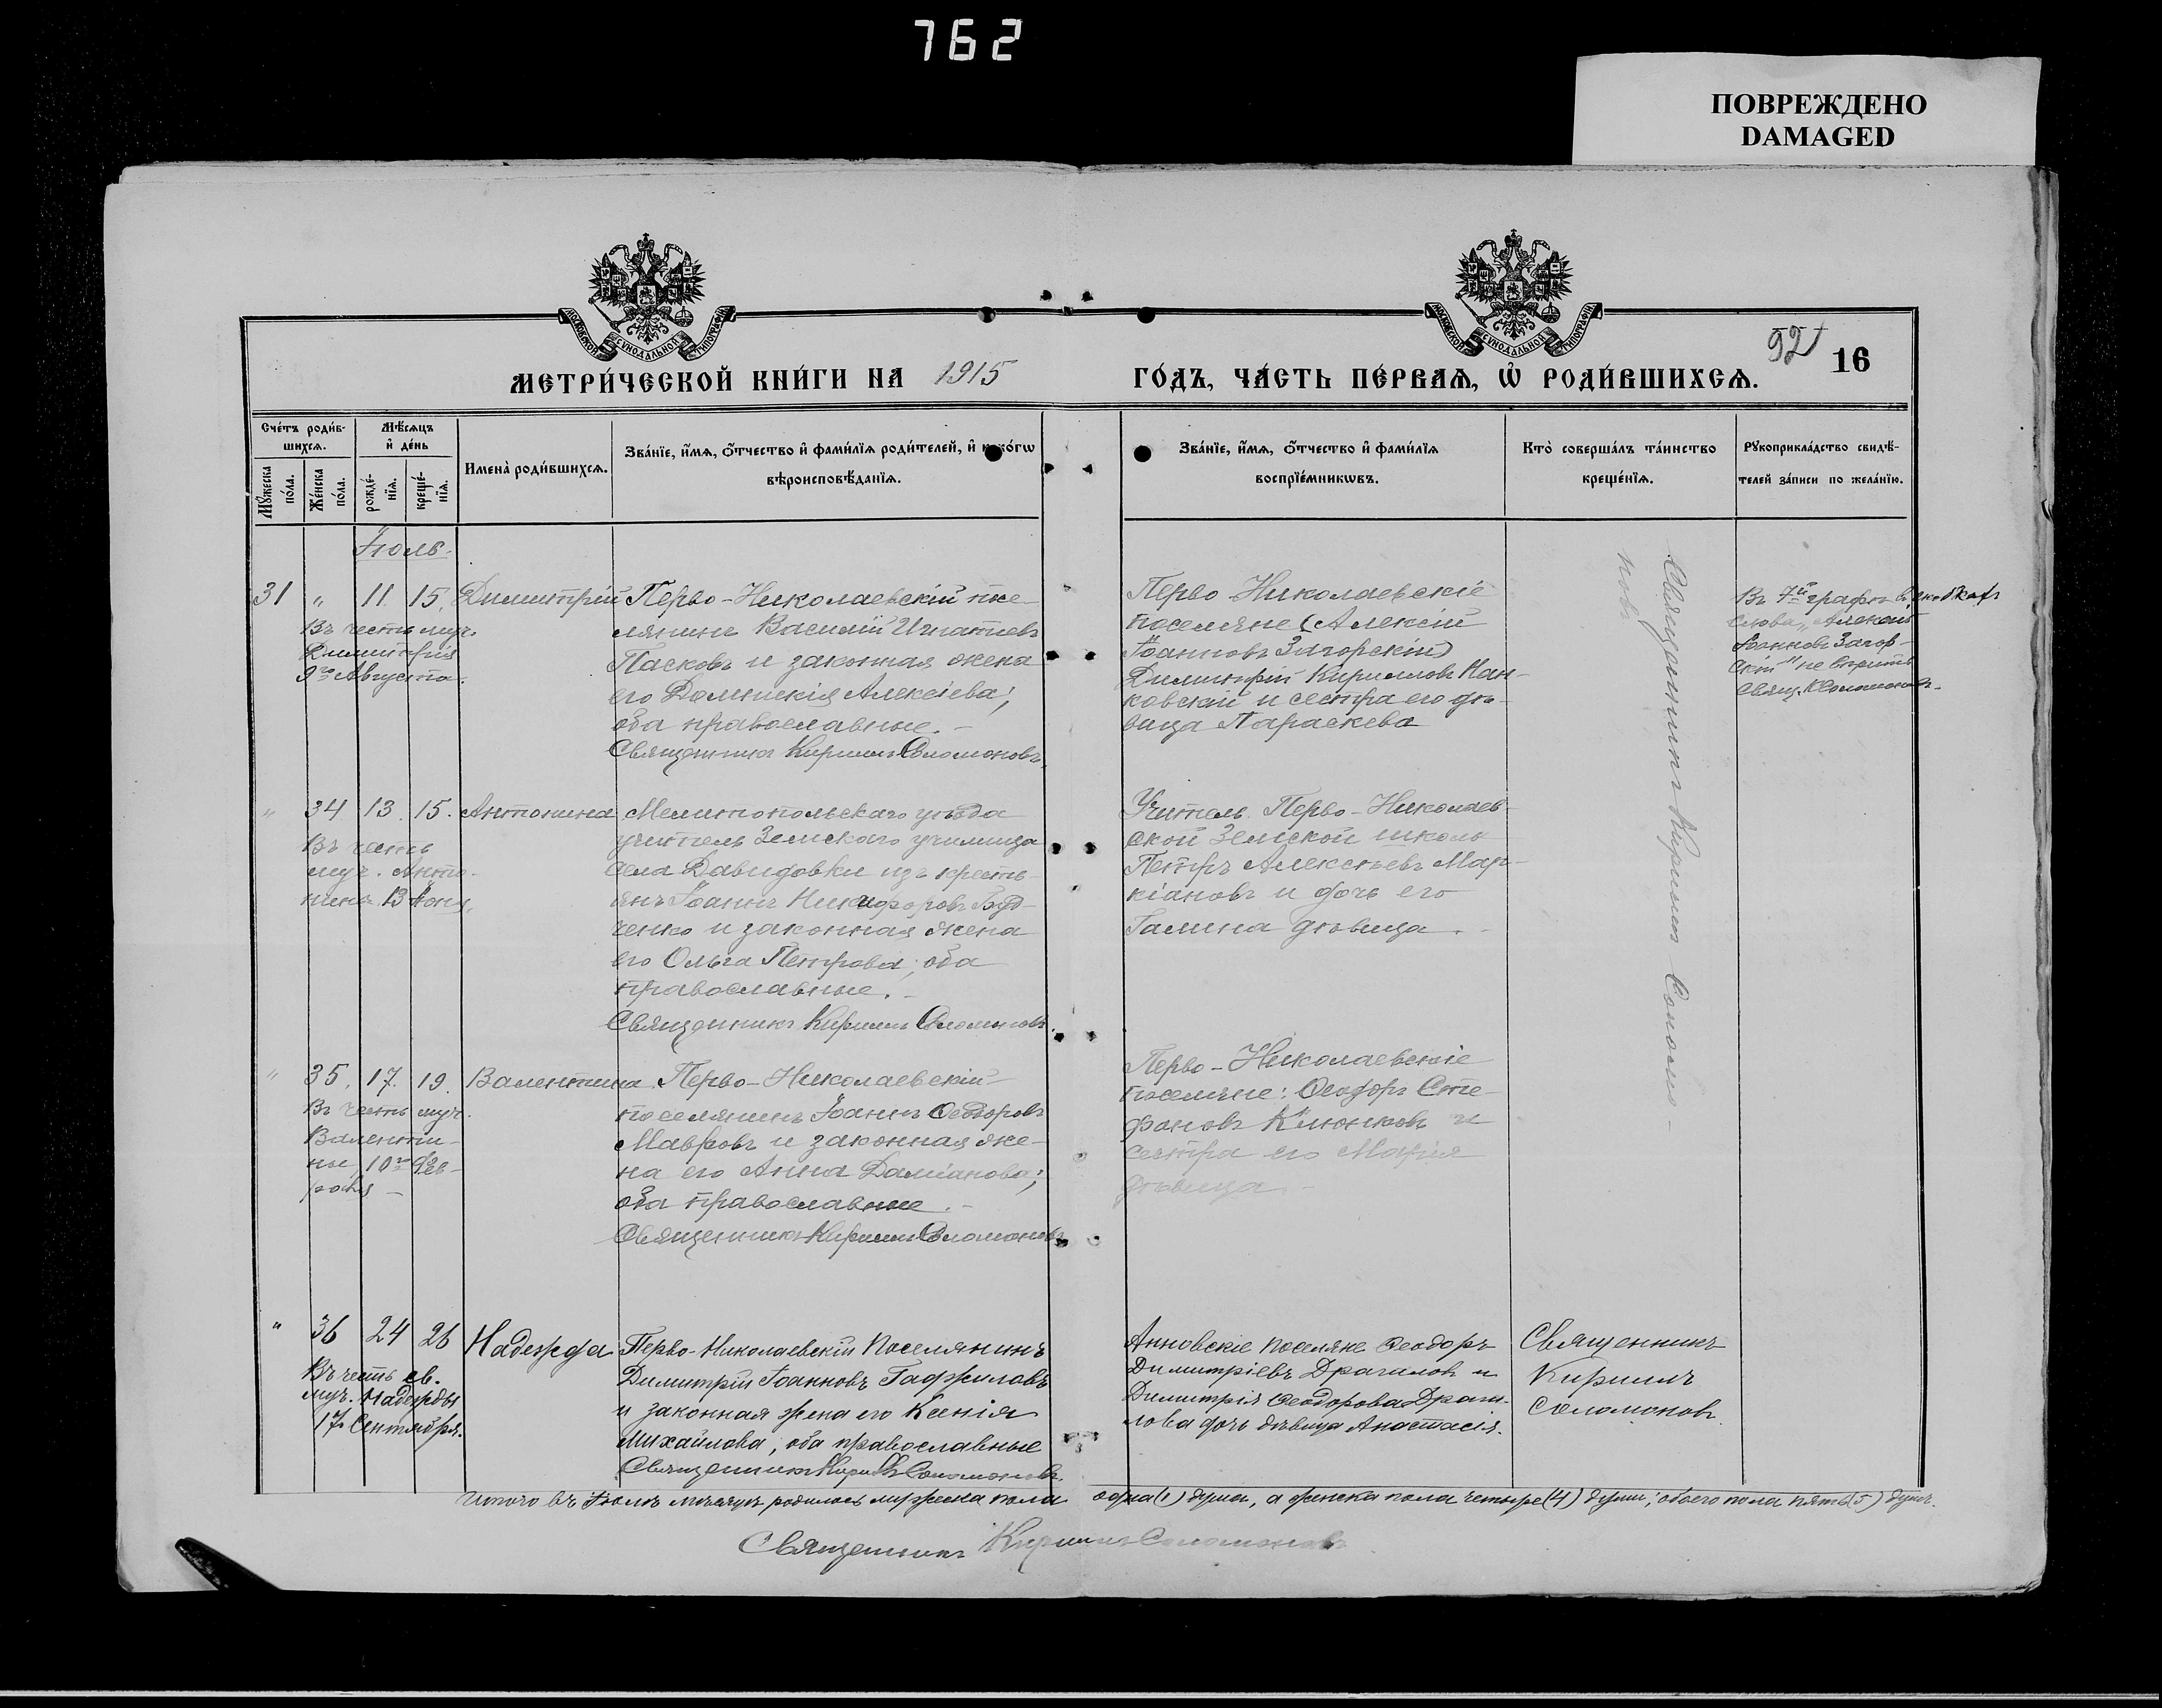 762
ПОВРЕЖДЕНО
DAMAGED
МОСКОВСКОЙ СѴНОДАЛЬНОЙ ТИПОГРАФІИ
МОСКОВСКОЙ СѴНОДАЛЬНОЙ ТИПОГРАФІИ
92
16
МЕТРИ́ЧЕСКОЙ КНИ́ГИ НА 1915 ГО́ДЪ, ЧА́СТЬ ПЕ́РВАѦ, Ѡ҆ РОДИ́ВШИХСѦ.
Сче́тъ роди́в-
шихсѧ.
Мꙋ́жеска
по́ла.
Же́нска
по́ла.
Мѣ́сѧцъ
и҆ де́нь
рожде́-
нїѧ.
креще́-
нїѧ.
Имена̀ роди́вшихсѧ.
Зва́нїе, и҆́мѧ, ѻ҆́тчество и҆ фами́лїѧ роди́телей, и҆ како́гѡ
вѣроисповѣ́данїѧ.
Зва́нїе, и҆́мѧ, ѻ҆́тчество и҆ фами́лїѧ
воспрїе́мникѡвъ.
Кто̀ соверша́лъ та́инство
креще́нїѧ.
Рꙋкоприкла́дство свидѣ́-
телей за́писи по жела́нїю.
Іюль.
31 " 11. 15. Димитрій
Въ честь муч.
Димитрія
9го Августа.
Перво-Николаевскій посе-
лянинъ Василій Игнатіевъ
Пасковъ и законная жена
его Домникія Алексіева;
оба православные.-
Священникъ Кириллъ Соломоновъ.
Перво Николаевскіе
поселяне (Алексій
Іоанновъ Загорскій)
Димитрій Кирилловъ Кан-
ковскій и сестра его дѣ-
вица Параскева
Въ 7й графѣ въ скобкахъ
слова "Алексій
Іоанновъ Загор-
скій" не вѣрить
Свящ. К Соломоновъ.
" 34 13. 15. Антонина
Въ честь
муч. Анто-
нины 13 Іюня.
Мелитопольскаго уѣзда
учитель Земскаго училища
села Давидовки изъ кресть-
янъ Іоаннъ Никифоровъ Буд-
ченко и законная жена
его Ольга Петрова; оба
православные.-
Священникъ Кириллъ Соломоновъ.
Учитель Перво-Николаев-
ской Земской школы
Петръ Алексѣевъ Мар-
кіановъ и дочь его
Галина дѣвица.-
Священникъ Кириллъ Соломо-
новъ
" 35. 17. 19. Валентина
Въ честь муч.
Валенти-
ны, 10го Фев-
раля -
Перво-Николаевскій
поселянинъ Іоаннъ Ѳеодоровъ
Мавровъ и законная же-
на его Анна Даміанова;
оба православные.-
Священникъ Кириллъ Соломоновъ
Перво-Николаевскіе
поселяне: Ѳеодоръ Сте-
фановъ Клюнковъ и
сестра его Марія
дѣвица.-
" 36 24 26 Надежда
Въ честь св.
муч. Надежды
17 Сентября.
Перво-Николаевскій поселянинъ
Димитрій Іоанновъ Гафиловъ
и законная жена его Ксенія
Михайлова, оба православные
Священникъ Кириллъ Соломоновъ.
Анновскіе поселяне Ѳеодоръ
Димитріевъ Драгиловъ и
Димитрія Ѳеодорова Драги-
лова дочь дѣвица Анастасія.
Священникъ
Кириллъ
Соломоновъ.
Итого въ Іюлѣ мѣсяцѣ родилось мужеска пола одна (1) душа, а женска пола четыре (4) души; обоего пола пять (5) душъ.
Священникъ Кириллъ Соломоновъ